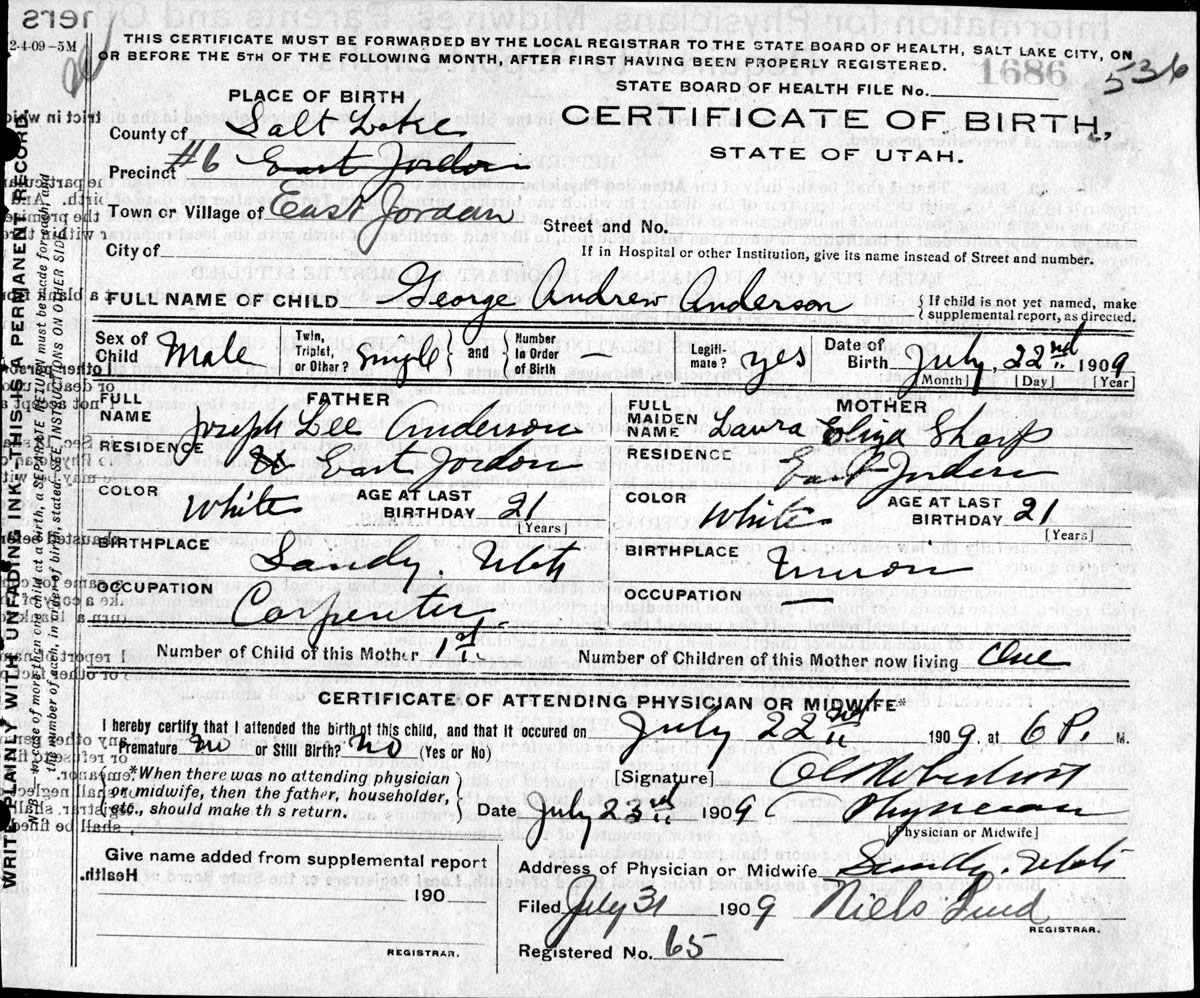 2-4-09-5M
THIS CERTIFICATE MUST BE FORWARDED BY THE LOCAL REGISTRAR TO THE STATE BOARD OF HEALTH, SALT LAKE CITY, ON
OR BEFORE THE 5TH OF THE FOLLOWING MONTH, AFTER FIRST HAVING BEEN PROPERLY REGISTERED.
1686
536
STATE BOARD OF HEALTH FILE No.
PLACE OF BIRTH
CERTIFICATE OF BIRTH,
STATE OF UTAH.
County of Salt Lake
Precinct #6 East Jordon
Town or Village of East Jordan
Street and No.
City of
If in Hospital or other Institution, give its name instead of Street and number.
FULL NAME OF CHILD George Andrew Anderson
{ If child is not yet named, make
supplemental report, as directed.
Sex of Child Male
Twin, Triplet, or Other? Single } and { Number in Order of Birth —
Legiti-mate? yes
Date of Birth July 22nd 1909
[Month] [Day] [Year]
FATHER
FULL NAME Joseph Lee Anderson
RESIDENCE East Jordon
COLOR White AGE AT LAST BIRTHDAY 21
[Years]
BIRTHPLACE Sandy. Utah
OCCUPATION Carpenter.
MOTHER
FULL MAIDEN NAME Laura Eliza Sharp
RESIDENCE East Jordern
COLOR White AGE AT LAST BIRTHDAY 21
[Years]
BIRTHPLACE Union
OCCUPATION —
Number of Child of this Mother 1st
Number of Children of this Mother now living One
CERTIFICATE OF ATTENDING PHYSICIAN OR MIDWIFE*
I hereby certify that I attended the birth of this child, and that it occured on July 22nd 1909 at 6 P. M.
Premature no or Still Birth? No (Yes or No)
*When there was no attending physician
or midwife, then the father, householder,
etc., should make th s return.
[Signature] Robertson
Date July 23rd 1909 Physician
[Physician or Midwife]
Give name added from supplemental report
190
REGISTRAR.
Address of Physician or Midwife Sandy. Utah
Filed July 31 1909 Niels Lind
REGISTRAR.
Registered No. 65
WRITE PLAINLY WITH UNFADING INK-THIS IS A PERMANENT RECORD.
N. B.—In case of more than one child at a birth, a SEPARATE RETURN must be made for each, and
the number of each, in order of birth, stated. (SEE INSTRUCTIONS ON OTHER SIDE.)